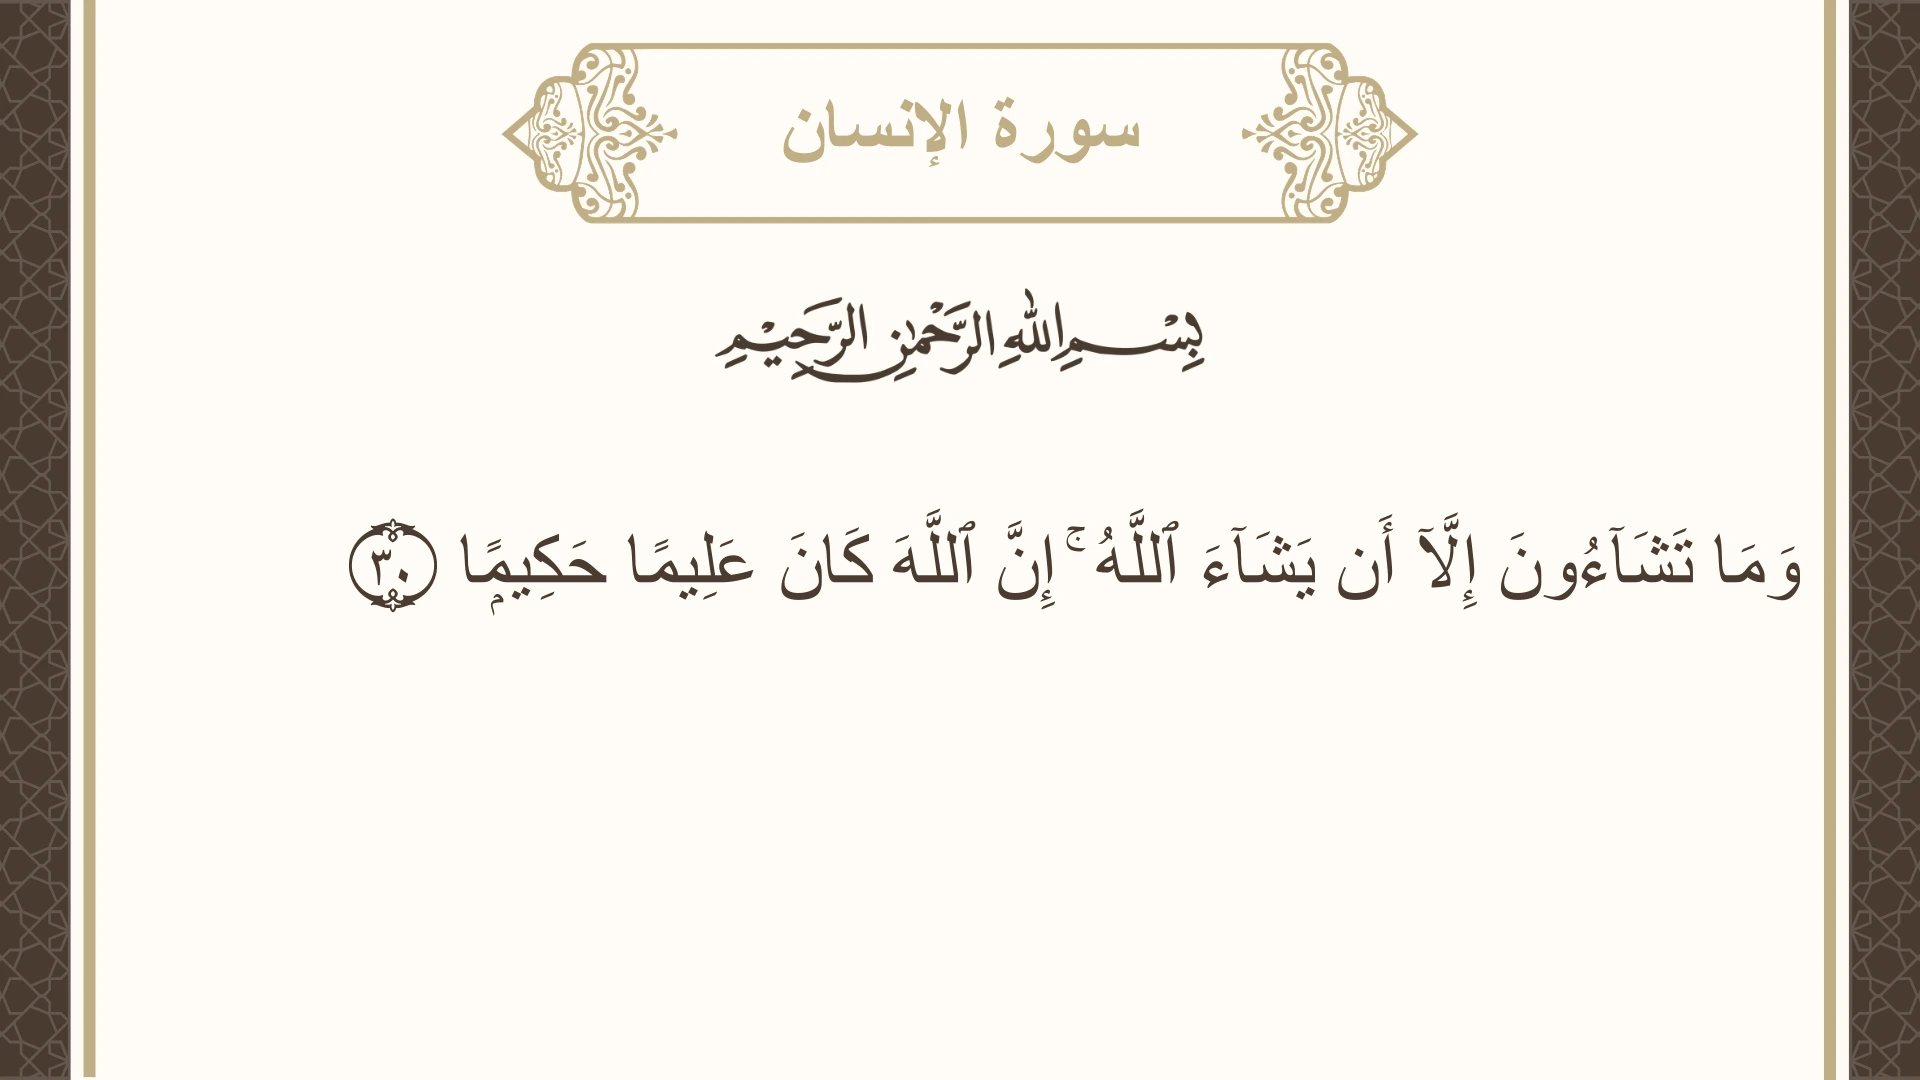 سورة الإنسان
بِسْمِ اللهِ الرَّحْمٰنِ الرَّحِيْمِ
وَمَا تَشَآءُونَ إِلَّآ أَن يَشَآءَ ٱللَّهُ ۚ إِنَّ ٱللَّهَ كَانَ عَلِيمًا حَكِيمًۭا ٣٠